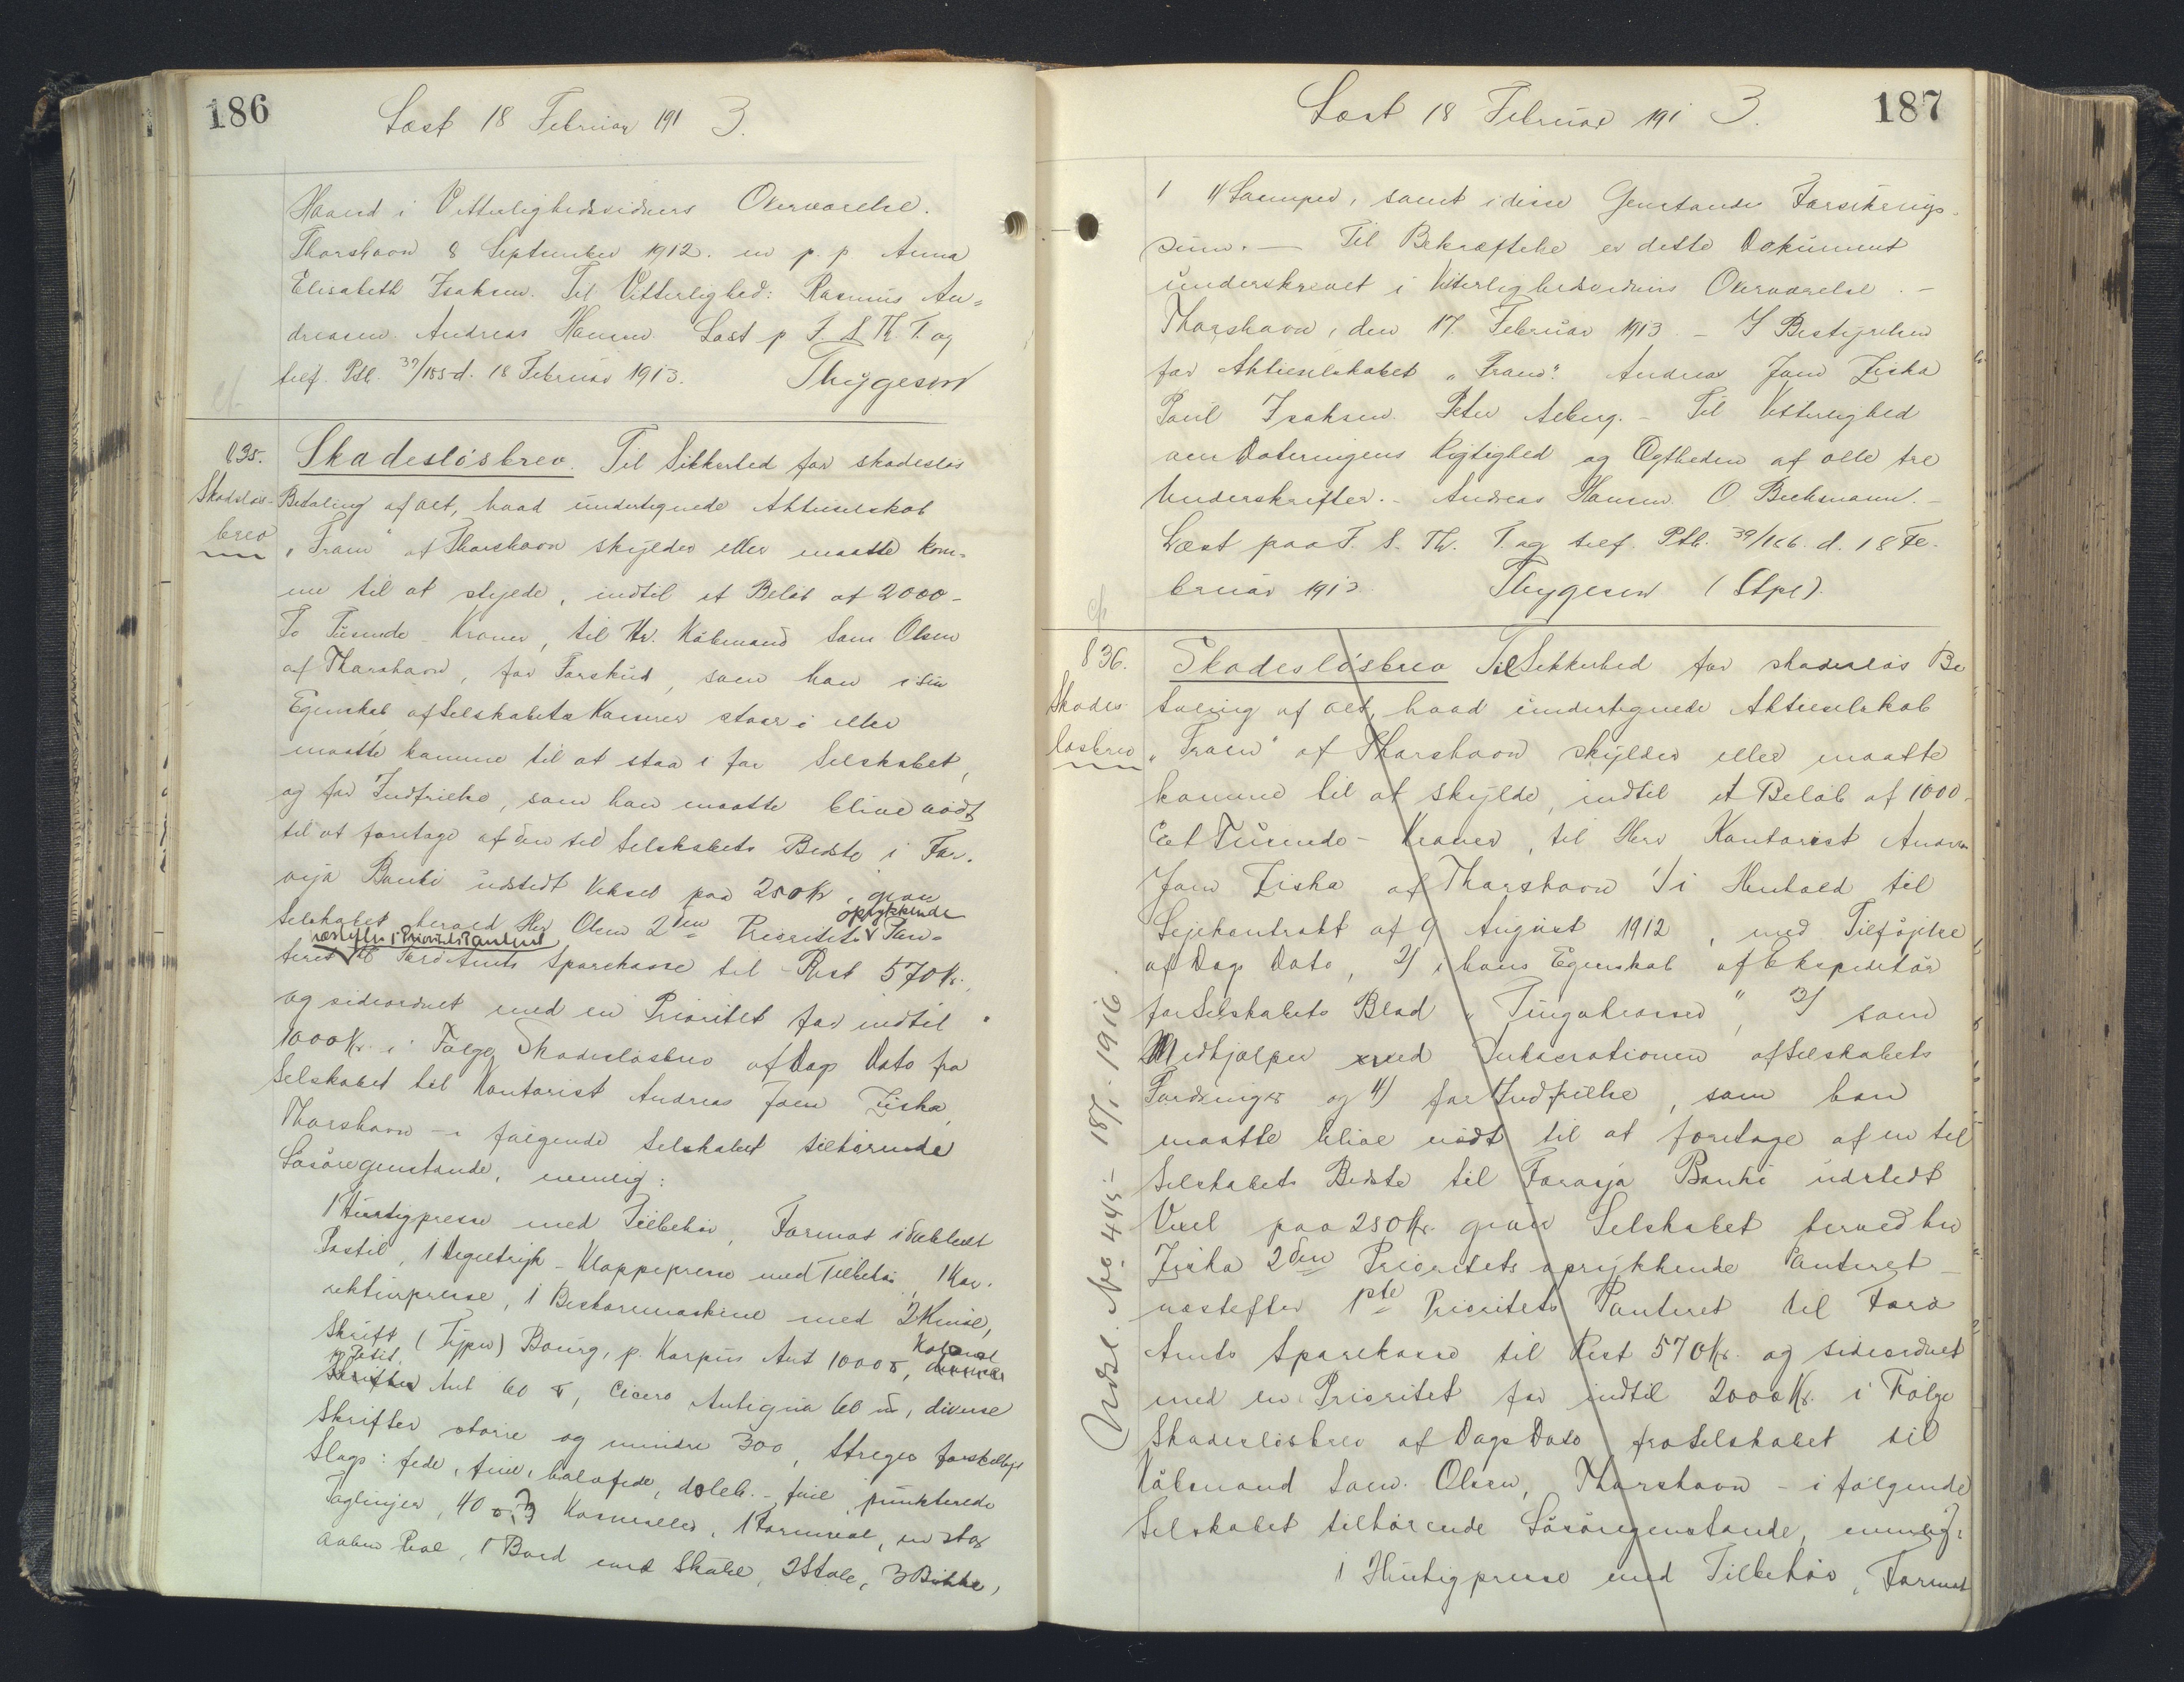 186
Læst 18 Februar 1913.
Haand i Vitterlighedsvidners Overværelse.
Thorshavn 8 September 1912. m p. p Anna
Elisabeth Isaksen. Til Vitterlighed: Rasmus An=
dreasen. Andreas Hansen. Læst p F. S. Th. T. og
tilf. Ptb. 39/185 d. 18 Februar 1913. Thygesen
835.
Skadeslös-
brev
Skadeslösbrev. Til Sikkerhed for skadeslös
Betaling af alt, hvad undertegnede Aktieselskab
"Fram" af Thorshavn skylder eller maatte kom-
me til at skylde, indtil et Beløb af 2000 -
To Tusinde - Kroner, til Hr. Købmand Sam Olsen
af Thorshavn, for Forskud, som han i sin
Egenskab af Selskabets Kasserer staar i eller
maatte komme til at staa i for Selskabet,
og for Indfrielse, som han maatte blive nødt
til at foretage af en til Selskabets Bedste i Før-
oyja Banki udstedt Veksel paa 250 Kr, giver
Selskabet herved Her Olsen 2den Prioritets oprykkende Pan-
teret næstefter 1 Prioritets Panteret til Færø Amts Sparekasse til Rest 570 Kr.,
og sideordnet med en Prioritet for indtil
1000 Kr. i Følge Skadesløsbrev af Dags Dato fra
Selskabet til Kontorist Andreas Joen Ziska,
Thorshavn - i følgende Selskabet tilhørende
Løsøregenstande, nemlig:
1 Hurtigpresse med Tilbehør, Format i dublet
Postil, 1 Degeltryk - Klappepresse med Tilbehør, 1 Kor-
rekturpresse, 1 Beskæremaskine med 2 Knive,
Skrift (Typer) Bourg, p. Korpus Ant 1000 ℔, Kolonel
p Petit. Ant 60 ℔, Cicero Antiqua 60 ℔, diverse
Skrifter større og mindre 300, Streger forskellige
Slags: fede, fine, halvfede, dobb. - fine, punkterede
Taglinjer, 40 Kasseller, 1 Formreol, en stor
aaben Reol, 1 Bord med Skabe, 2 Stole, 3 Bukke,
187
Læst 18 Februar 1913.
1 4 Lamper, samt i disse Genstandes Forsikrings-
sum. — Til Bekræftelse er dette Dokument
underskrevet i Vitterlighedsvidners Overværelse. -
Thorshavn, den 17. Februar 1913 - I Bestyrelsen
for Aktieselskabet "Fram". Andreas Joen Ziska
Poul Isaksen. Peter Aaberg. - Til Vitterlighed
om Dateringens Rigtighed og Ægtheden af alle tre
Underskrifter. - Andreas Hansen. O. Bechmann. -
Læst paa F. S. Th. T. og tilf. Ptb. 39/186. d. 18 Fe-
bruar 1913. Thygesen (Stpl).
836.
Skades-
løsbrev
Skadesløsbrev Til Sikkerhed for skadesløs Be
taling af alt, hvad undertegnede Aktieselskab
"Fram" af Thorshavn skylder eller maatte
komme til at skylde, indtil et Beløb af 1000 -
Eet Tusinde - Kroner, til Herr Kontorist Andreas
Joen Ziska af Thorshavn 1/ i Henhold til
Lejekontrakt af 9 August 1912, med Tilføjelse
af Dags Dato, 2/ i hans Egenskab af Ekspeditør
for Selskabets Blad "Tingakrossur", 3/ som
Medhjælper ved Inkasrationen af Selskabets
Fordringer og 4/ for Indfrielse, som han
maatte blive nødt til at foretage af en til
Selskabets Bedste til Føroyja Banki udstedt
Vexel paa 250 Kr. giver Selskabet herved hr
Ziska 2den Prioritets oprykkende Panteret -
næstefter 1ste Prioritets Panteret til Færø
Amts Sparekasse til Rest 570 Kr. og sideordnet
med en Prioritet for indtil 2000 Kr. i Følge
Skadesløsbrev af Dags Dato fra Selskabet til
Købmand Sam. Olsen, Thorshavn - i følgende
Selskabet tilhørende Løsøregenstande, nemlig:
1 Hurtigpresse med Tilbehør, Format
Udsl. No 445 - 18/1 - 1916.